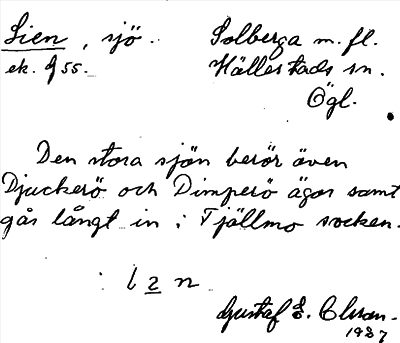 Lien, sjö. Solberga m. fl.
ek. 9 55. Hällestads sn.
Ögl.
Den stora sjön berör även
Djuckerö och Dimperö ägor samt
går långt in i Tjällmo socken.
l i n
Gustaf E. Olsson.
1937